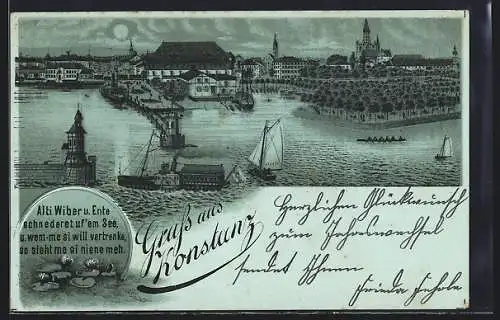 Alti Wiber u. Ente
schnederet uf'em See,
u. wem-me si will vertrenke,
so sieht me si niene meh.
Gruß aus
Konstanz
Herzlichen Glückwunsch
zum Jahreswechsel
sendet Ihnen
Frieda